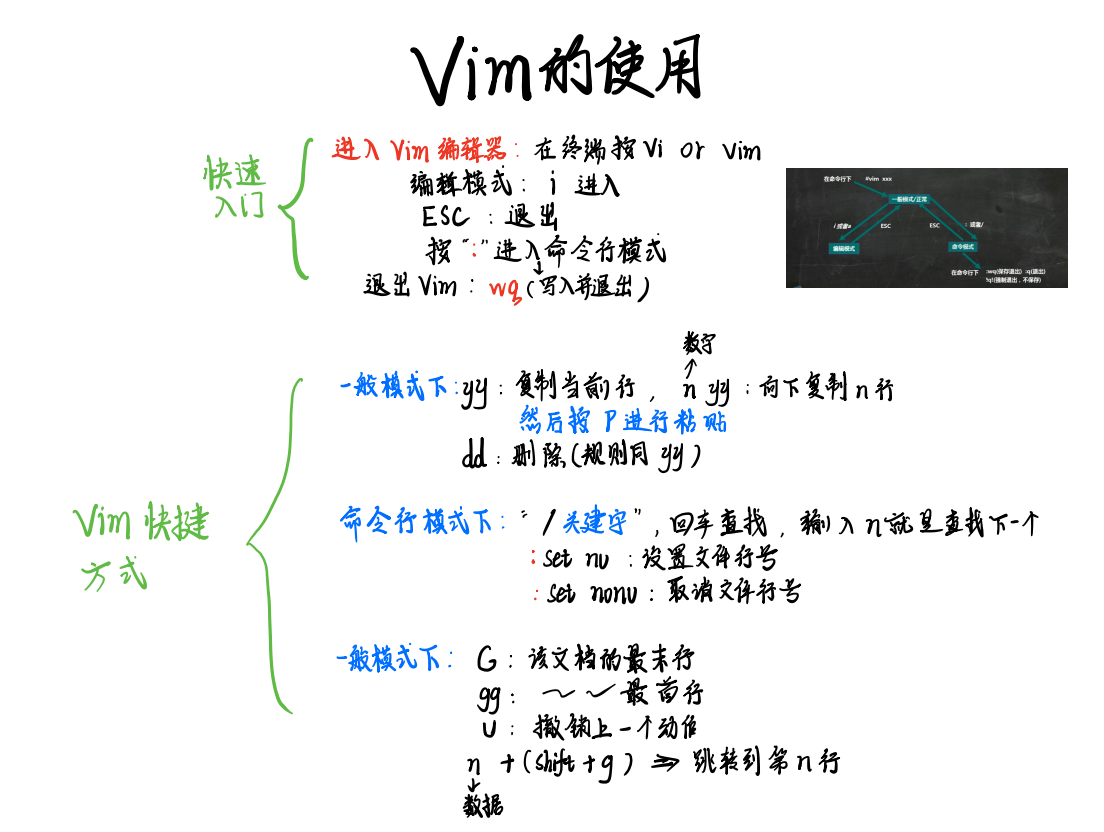 Vim的使用
快速
入门
进入Vim编辑器：在终端按Vi or Vim
编辑模式：i 进入
ESC：退出
按“:”进入命令行模式
退出Vim：wq(写入并退出)
在命令行下 #vim xxx
一般模式/正常
i 或者a ESC ESC : 或者/
编辑模式 命令模式
在命令行下 :wq(保存退出) :q(退出)
!q!(强制退出，不保存)
Vim 快捷键
方式
数字
一般模式下：yy：复制当前行，n yy：向下复制n行
然后按 P 进行粘贴
dd：删除(规则同 yy)
命令行模式下：“/关键字”，回车查找，输入n就是查找下一个
:set nu：设置文件行号
:set nonu：取消文件行号
一般模式下：G：该文档的最末行
gg：～～最首行
u：撤销上一个动作
n +(shift+g) ⇒ 跳转到第n行
数据